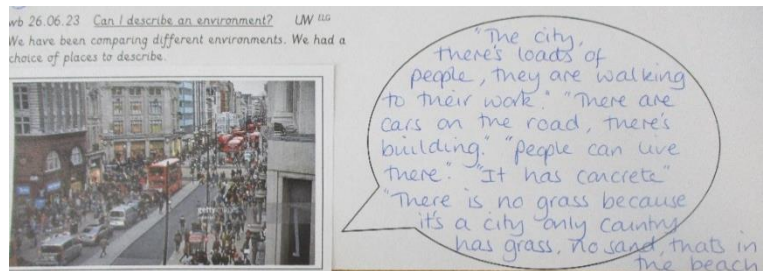 wb 26.06.23 Can I describe an environment? UW LLG
We have been comparing different environments. We had a
choice of places to describe.
"The city,
there's loads of
people, they are walking
to their work." "There are
cars on the road, there's
building." "people can live
there." "It has concrete"
"There is no grass because
it's a city only country
has grass, no sand, thats in
the beach